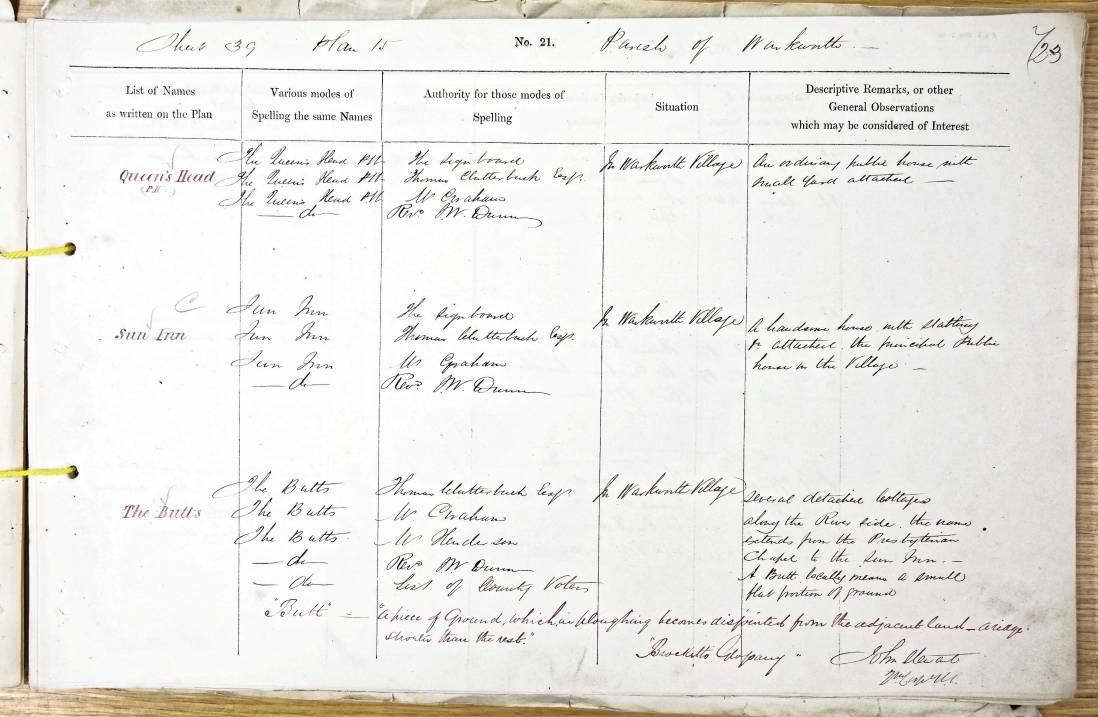 Sheet 39 Plan 15 No. 21. Parish of Warkworth. 23
List of Names
as written on the Plan
Various modes of
Spelling the same Names
Authority for those modes of
Spelling
Situation
Descriptive Remarks, or other
General Observations
which may be considered of Interest
Queen's Head
(P.H.)
The Queen's Head P.H.
The Queen's Head P.H.
The Queen's Head P.H.
do
The Signboard
Thomas Clutterbuck Esqr.
Mr Graham
Revd. J.W. Dunn
In Warkworth Village
An ordinary public house, with
small yard attached —
Sun Inn
Sun Inn
Sun Inn
Sun Inn
do
The Signboard
Thomas Clutterbuck Esqr.
Mr Graham
Revd. J.W. Dunn
In Warkworth Village
A handsome house with stabling
&c attached, the principal public
house in the Village —
The Butts
The Butts
The Butts
The Butts
do
do
Thomas Clutterbuck Esqr.
Mr Graham
Mr Henderson
Revd. J.W. Dunn
List of County Voters
In Warkworth Village
Several detached Cottages
along the River side, the name
extends from the Presbyterian
Chapel to the Sun Inn. —
A Butt locally means a small
flat portion of ground
"Butt" = "a piece of Ground, which, in ploughing becomes disjointed from the adjacent land – a ridge
shorter than the rest."
"Brockett's Glossary"
John Stewart